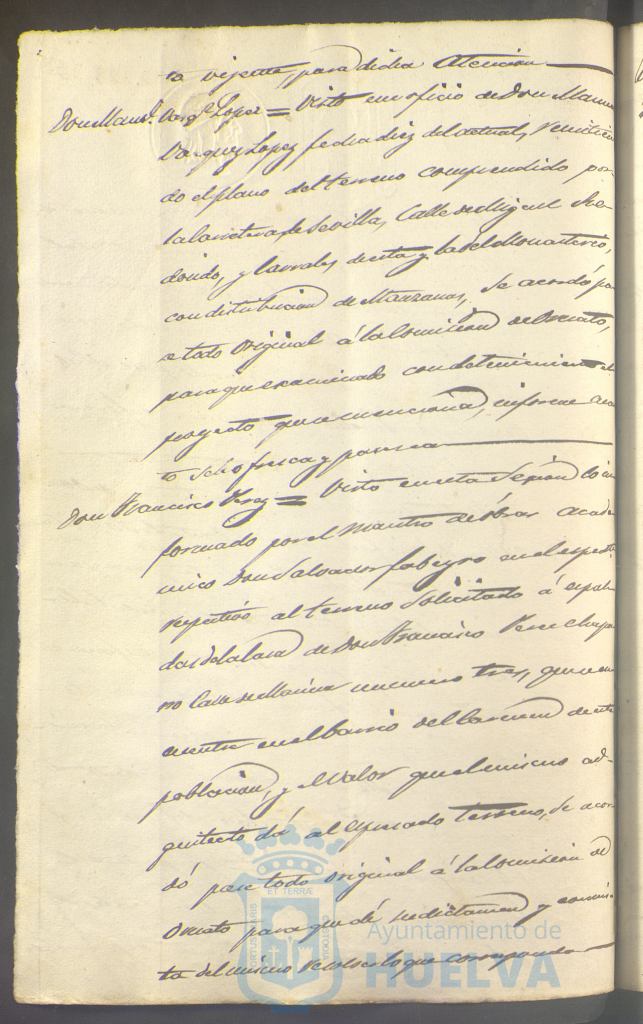 ta vijente, para dicha atencion
Don Manl. Vazqz. Lopez = Visto un oficio de Don Manuel
Vazquez Lopez fecha diez del actual, remitien
do el plano del terreno comprendido por
la Carretera de Sevilla, Calle de Miguel Re
dondo, y Corrales de esta y la del Monasterio,
con distribucion de Manzanas, se acordó pa
se todo original á la Comision de Ornato,
para que examinado con detenimiento el
proyecto que se menciona, informe cuan
to se le ofrezca y parezca
Don Francisco Perez = Visto en esta Sesion lo in
formado por el Maestro de obras acade
mico Don Salvador en el espedte.
respectivo al terreno solicitado á espal
das de la Casa de Don Francisco Perez
no Calle de Marina numero tres, que se en
cuentra en el barrio del Carmen de esta
poblacion, y el valor que el mismo ar
quitecto dá al espresado terreno, se acor
dó pase todo original á la Comision de
Ornato para que dé su dictamen y en vis
ta del mismo resolver lo que corresponda
PORTUS MARIS ET TERRÆ CUSTODIA
Ayuntamiento de
HUELVA